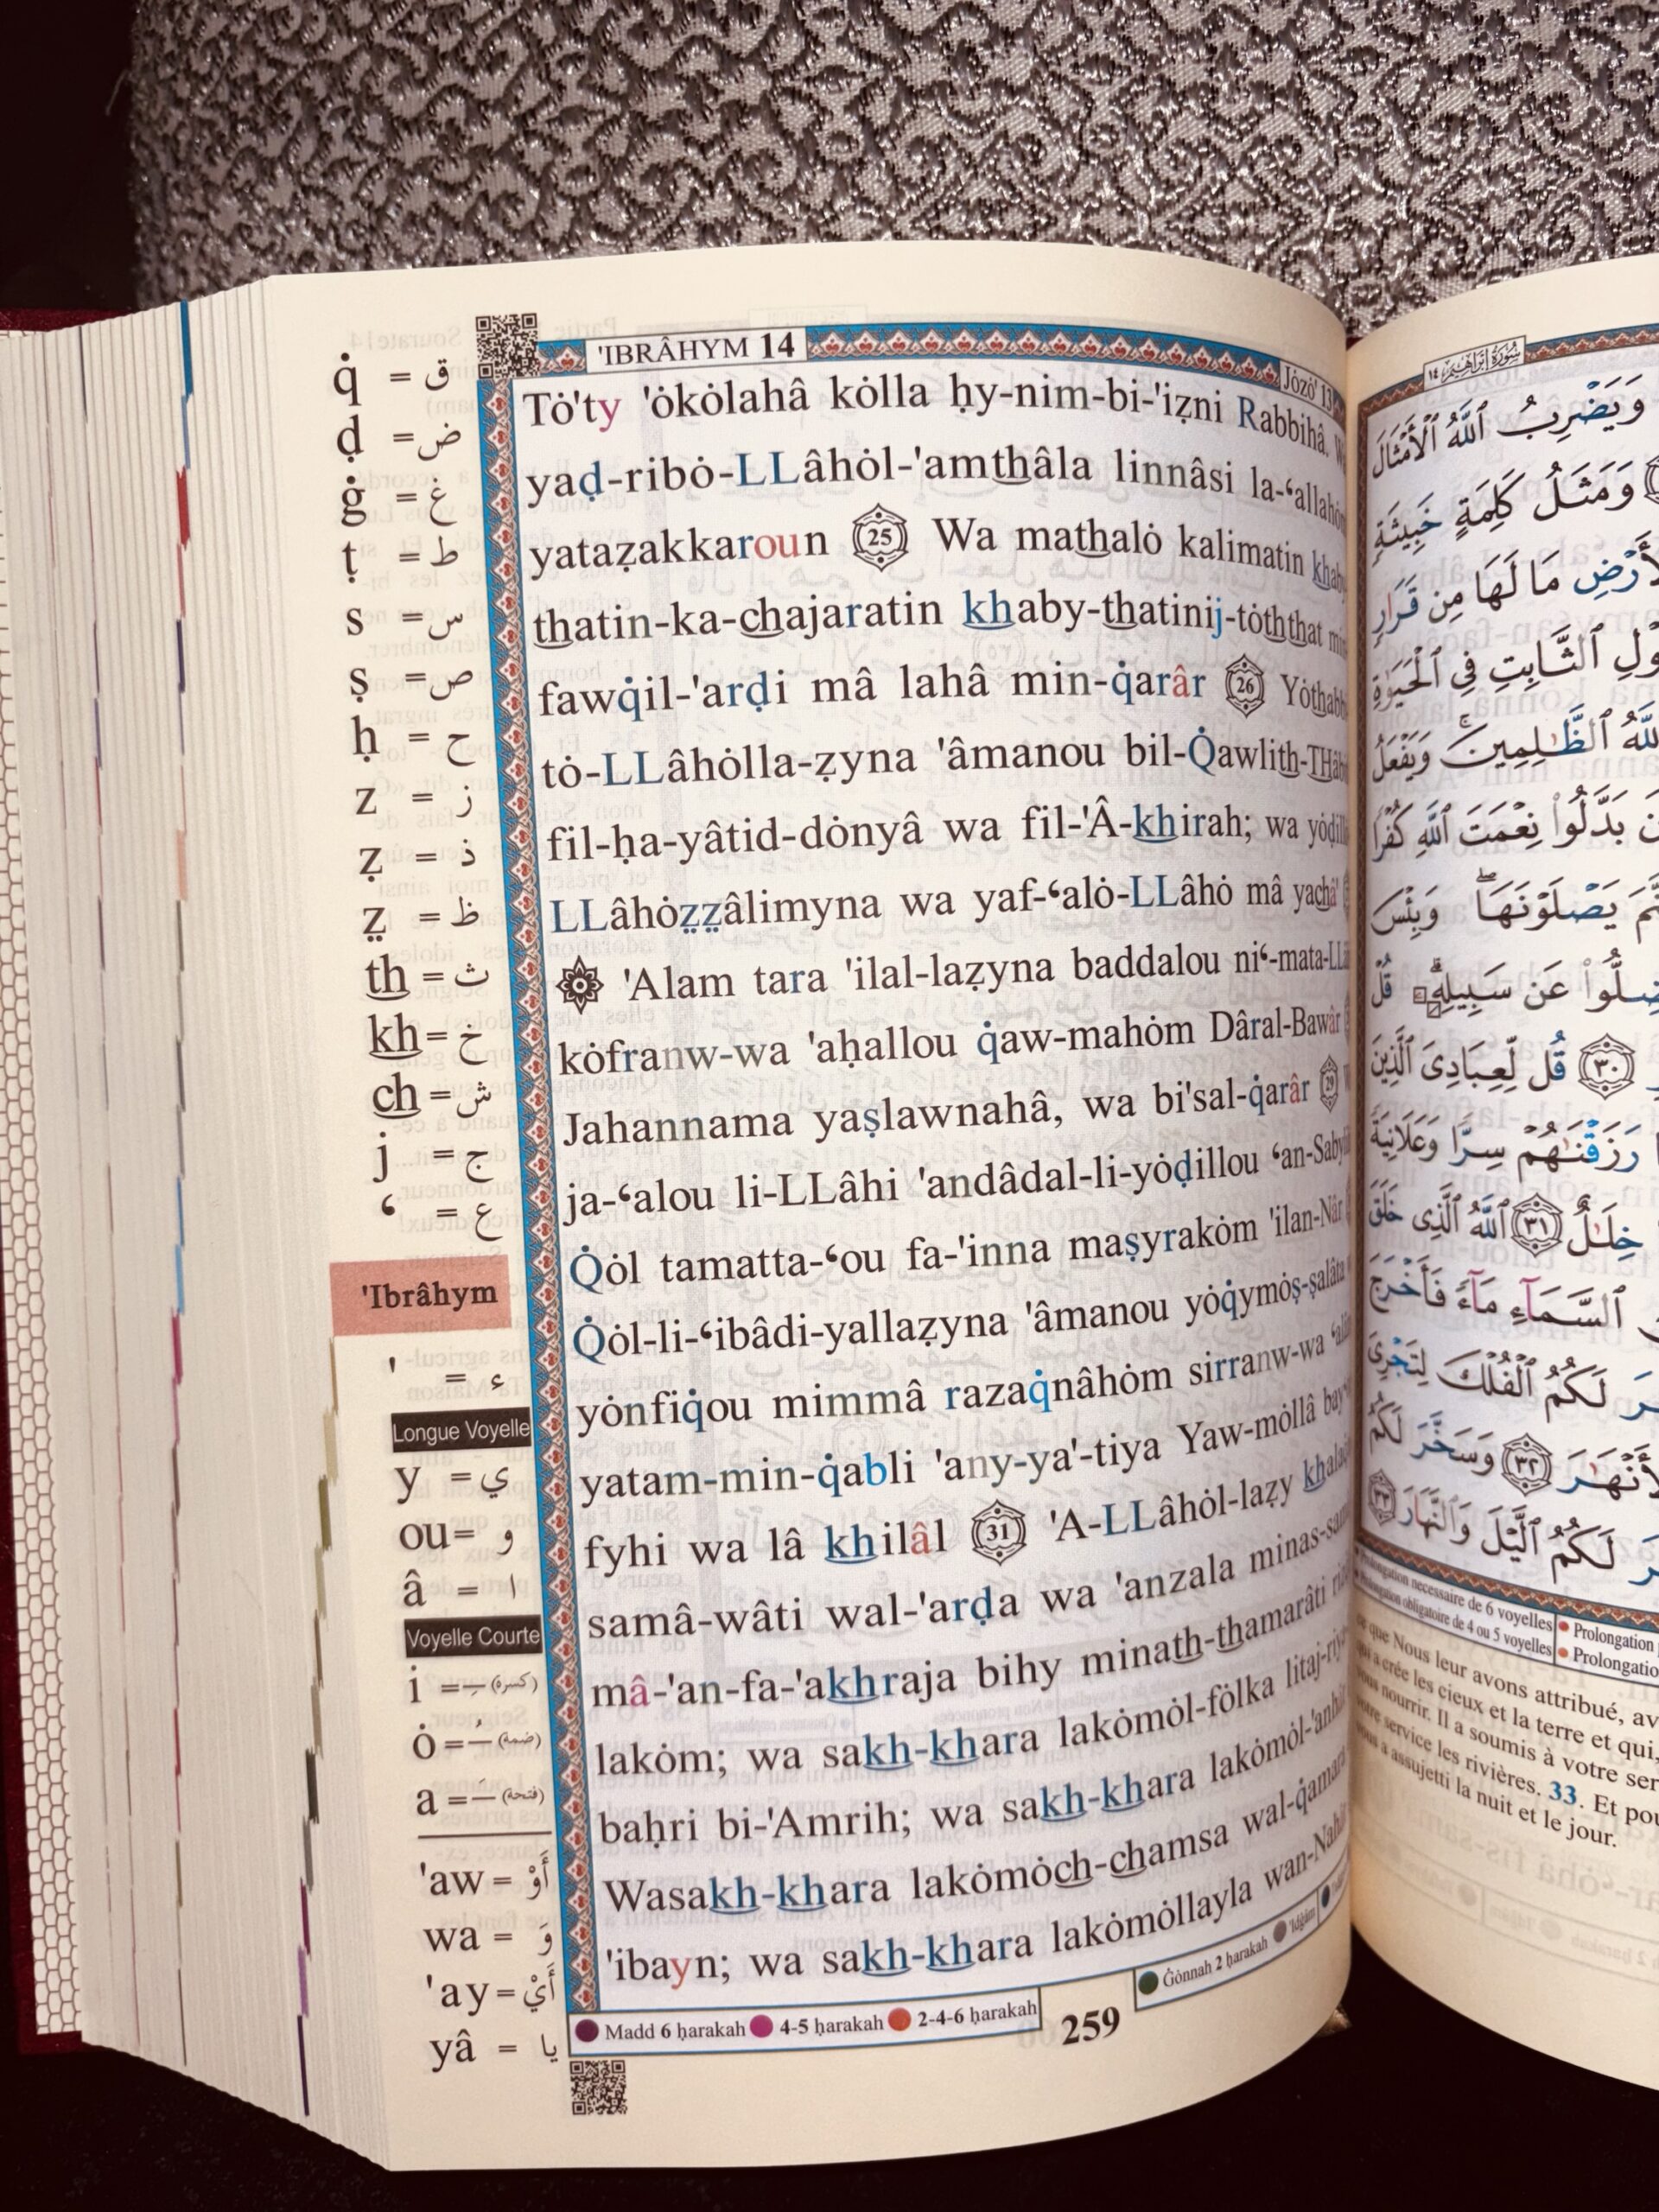 'IBRÂHYM 14
Jȯzȯ' 13
q̇ = ق
ḍ = ض
ġ = غ
ṭ = ط
s = س
ṣ = ص
ḥ = ح
z = ز
ẓ = ذ
z̤ = ظ
th = ث
kh = خ
ch = ش
j = ج
ʻ = ع
'Ibrâhym
' = ء
Longue Voyelle
y = ي
ou = و
â = ا
Voyelle Courte
i = ـِ (كسرة)
ȯ = ـُ (ضمة)
a = ـَ (فتحة)
'aw = أَوْ
wa = وَ
'ay = أَيْ
yâ = يا
Tȯ'ty 'ȯkȯlahâ kȯlla ḥy-nim-bi-'iẓni Rabbihâ.
yaḍ-ribȯ-LLâhȯl-'amthâla linnâsi la-ʻallahȯm
yataẓakkaroun 25 Wa mathalȯ kalimatin khaby
thatin-ka-chajaratin khaby-thatinij-tȯththat min
fawq̇il-'arḍi mâ lahâ min-q̇arâr 26 Yȯthabbi
tȯ-LLâhȯlla-ẓyna 'âmanou bil-Q̇awlith-THâbi
fil-ḥa-yâtid-dȯnyâ wa fil-'Â-khirah; wa yȯḍill
LLâhȯz̤z̤âlimyna wa yaf-ʻalȯ-LLâhȯ mâ yachâ'
'Alam tara 'ilal-laẓyna baddalou niʻ-mata-LLâ
kȯfranw-wa 'aḥallou q̇aw-mahȯm Dâral-Bawâr
Jahannama yaṣlawnahâ, wa bi'sal-q̇arâr 29
ja-ʻalou li-LLâhi 'andâdal-li-yȯḍillou ʻan-Saby
Q̇ȯl tamatta-ʻou fa-'inna maṣyrakȯm 'ilan-Nâr
Q̇ȯl-li-ʻibâdi-yallaẓyna 'âmanou yȯq̇ymȯṣ-ṣalâta
yȯnfiq̇ou mimmâ razaq̇nâhȯm sirranw-wa
yatam-min-q̇abli 'any-ya'-tiya Yaw-mȯllâ bay
fyhi wa lâ khilâl 31 'A-LLâhȯl-laẓy khalaq̇
samâ-wâti wal-'arḍa wa 'anzala minas-sam
mâ-'an-fa-'akhraja bihy minath-thamarâti
lakȯm; wa sakh-khara lakȯmȯl-fȯlka litaj-riy
baḥri bi-'Amrih; wa sakh-khara lakȯmȯl-'anhâ
Wasakh-khara lakȯmȯch-chamsa wal-q̇amara
'ibayn; wa sakh-khara lakȯmȯllayla wan-Nah
Madd 6 ḥarakah 4-5 ḥarakah 2-4-6 ḥarakah
259
Ġȯnnah 2 ḥarakah 'Idġâm
سُورَةُ إِبْرَاهِيمَ ١٤
وَيَضْرِبُ ٱللَّهُ ٱلْأَمْثَالَ
وَمَثَلُ كَلِمَةٍ خَبِيثَةٍ
مَا لَهَا مِن قَرَارٍ
ٱلثَّابِتِ فِي ٱلْحَيَوٰةِ
ٱلظَّـٰلِمِينَ ۚ وَيَفْعَلُ
بَدَّلُوا۟ نِعْمَتَ ٱللَّهِ كُفْرًا
يَصْلَوْنَهَا ۖ وَبِئْسَ
عَن سَبِيلِهِۦ ۗ قُلْ
٣٠ قُل لِّعِبَادِىَ ٱلَّذِينَ
رَزَقْنَـٰهُمْ سِرًّا وَعَلَانِيَةً
خِلَـٰلٌ ٣١ ٱللَّهُ ٱلَّذِى خَلَقَ
ٱلسَّمَآءِ مَآءً فَأَخْرَجَ
لَكُمُ ٱلْفُلْكَ لِتَجْرِىَ
٣٢ وَسَخَّرَ لَكُمُ
لَكُمُ ٱلَّيْلَ وَٱلنَّهَارَ ٣٣
Prolongation nécessaire de 6 voyelles
Prolongation obligatoire de 4 ou 5 voyelles
que Nous leur avons attribué,
a crée les cieux et la terre et qui,
vous nourrir. Il a soumis à votre
votre service les rivières. 33. Et
vous a assujetti la nuit et le jour.